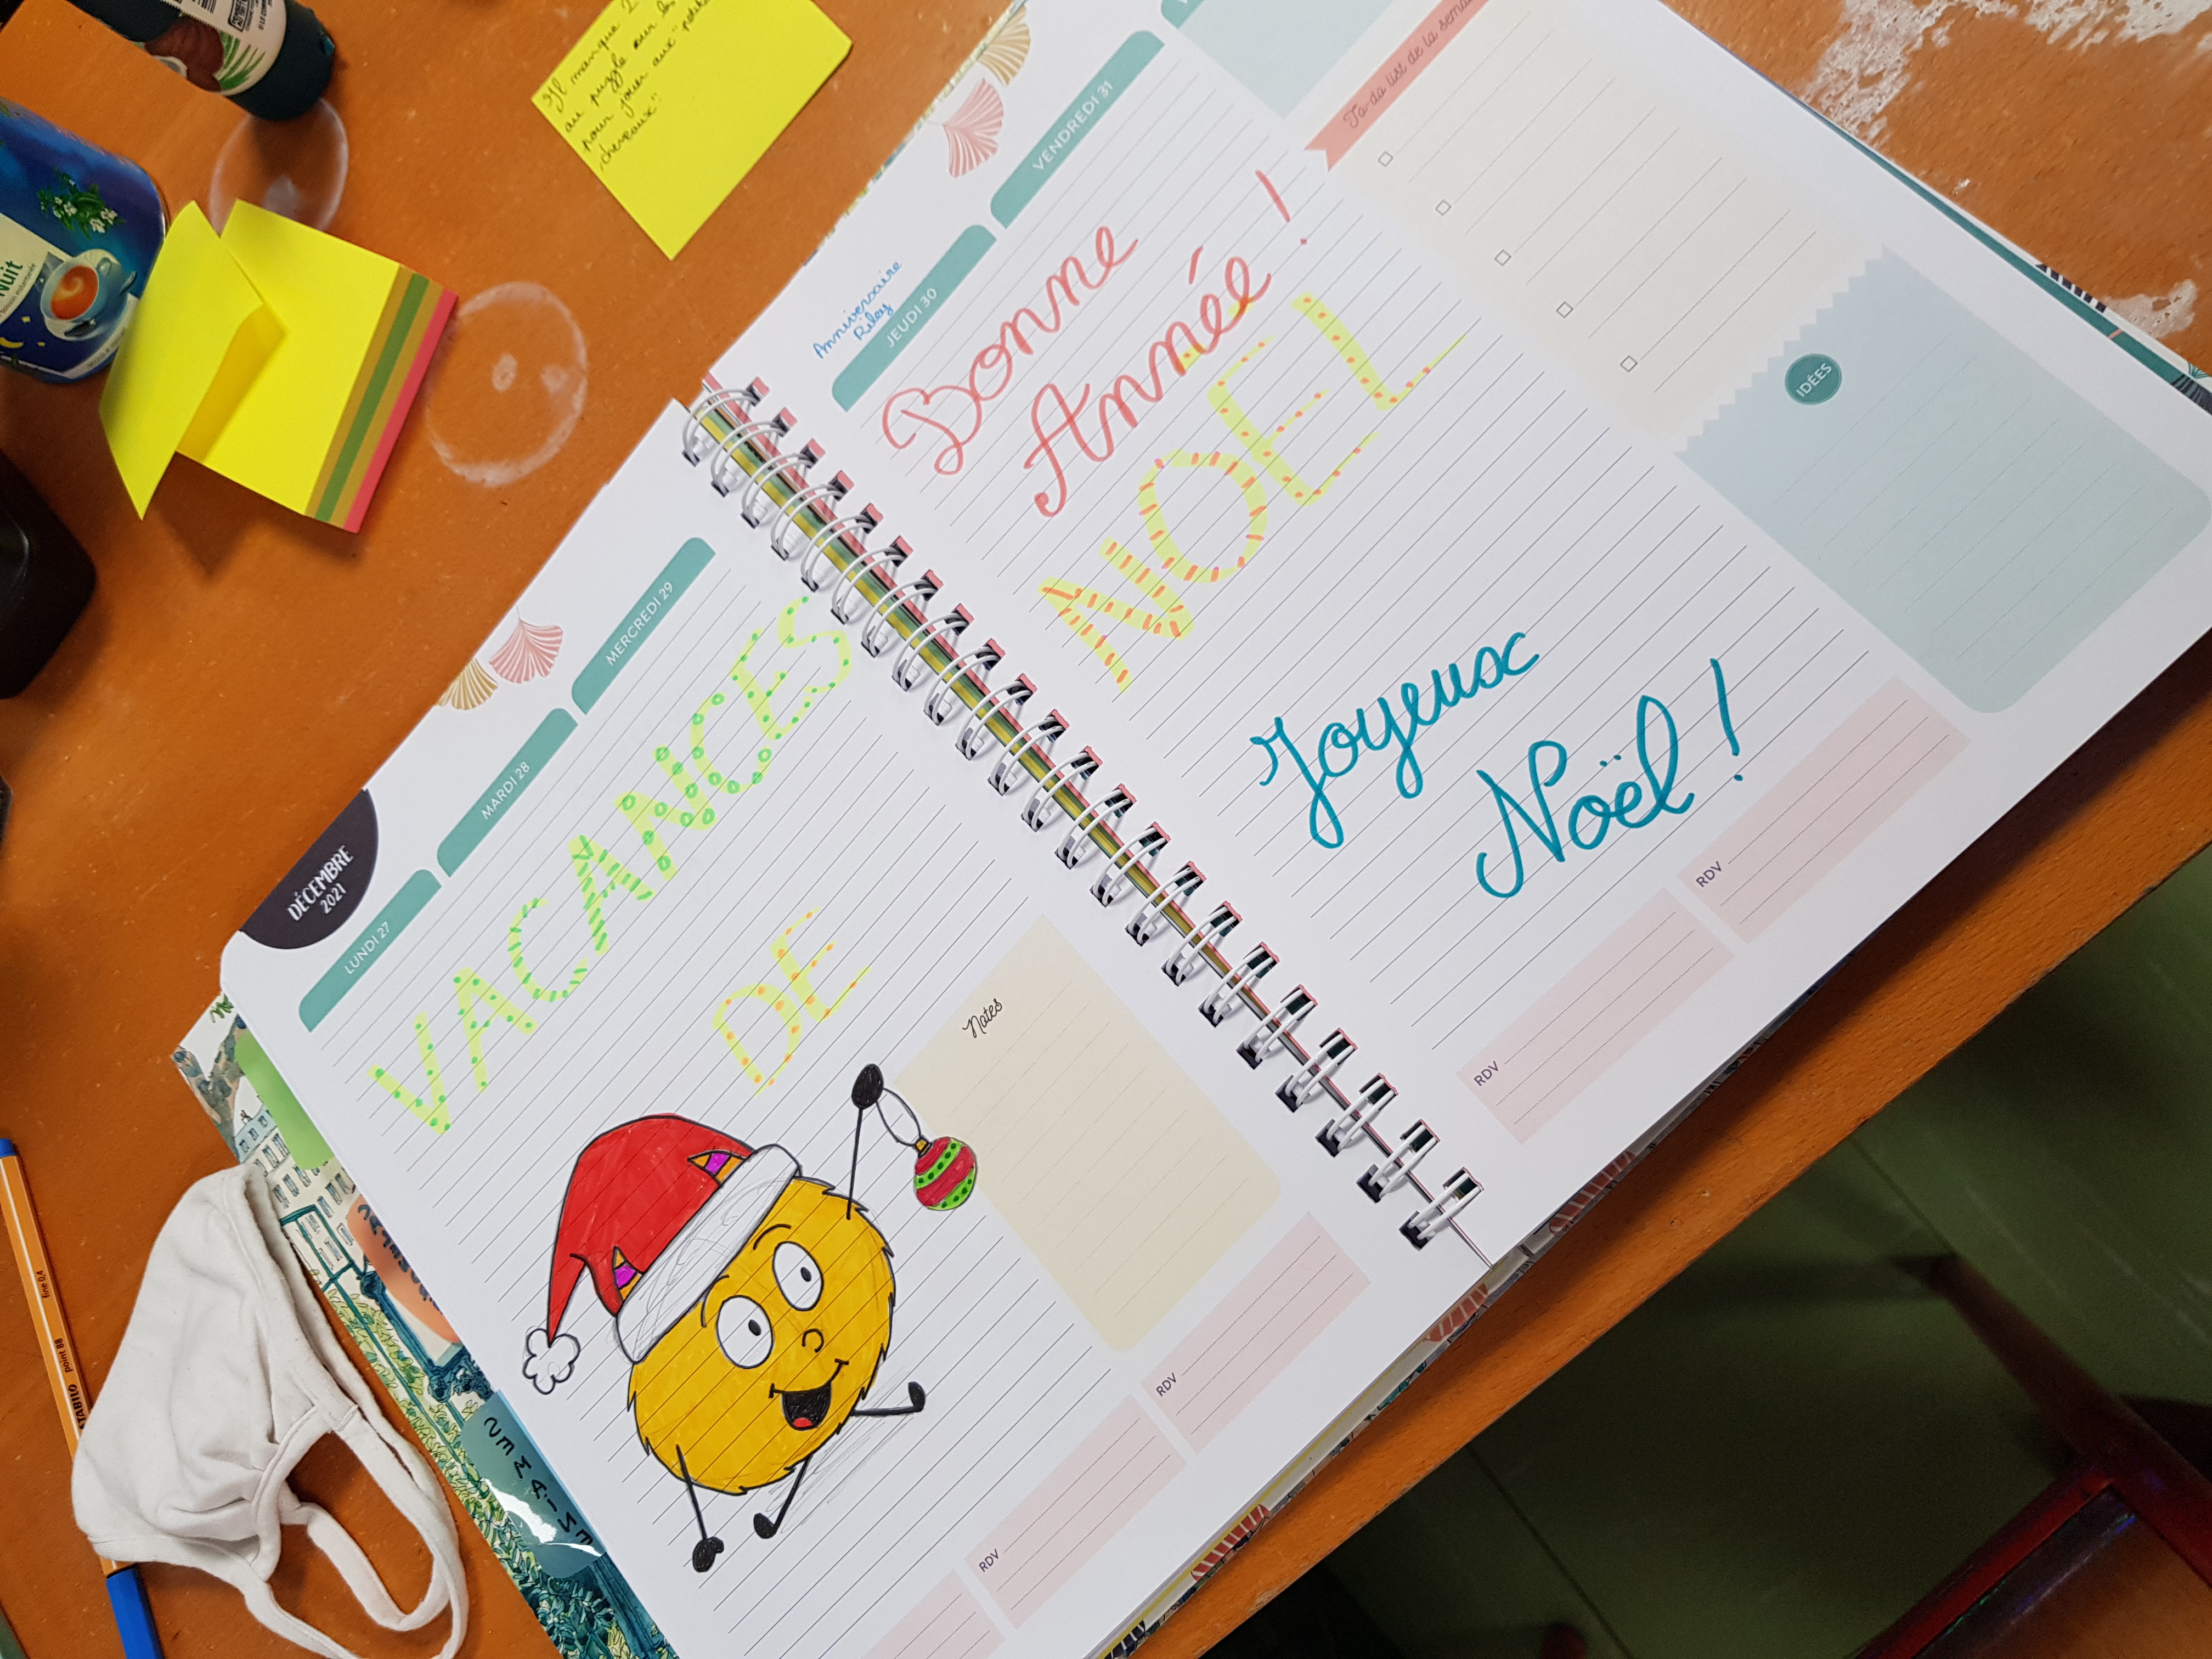 Il manque 2
au puzzle sur les
pour jouer aux "petits
chevaux"
Nuit
DÉCEMBRE
2021
LUNDI 27
MARDI 28
MERCREDI 29
VACANCES
DE
Notes
RDV
RDV
Anniversaire
Riley
JEUDI 30
VENDREDI 31
Bonne
Année !
NOEL
Joyeux
Noël !
RDV
RDV
To-do list de la
IDÉES
SEMAINE
STABILO point 88 fine 0,4